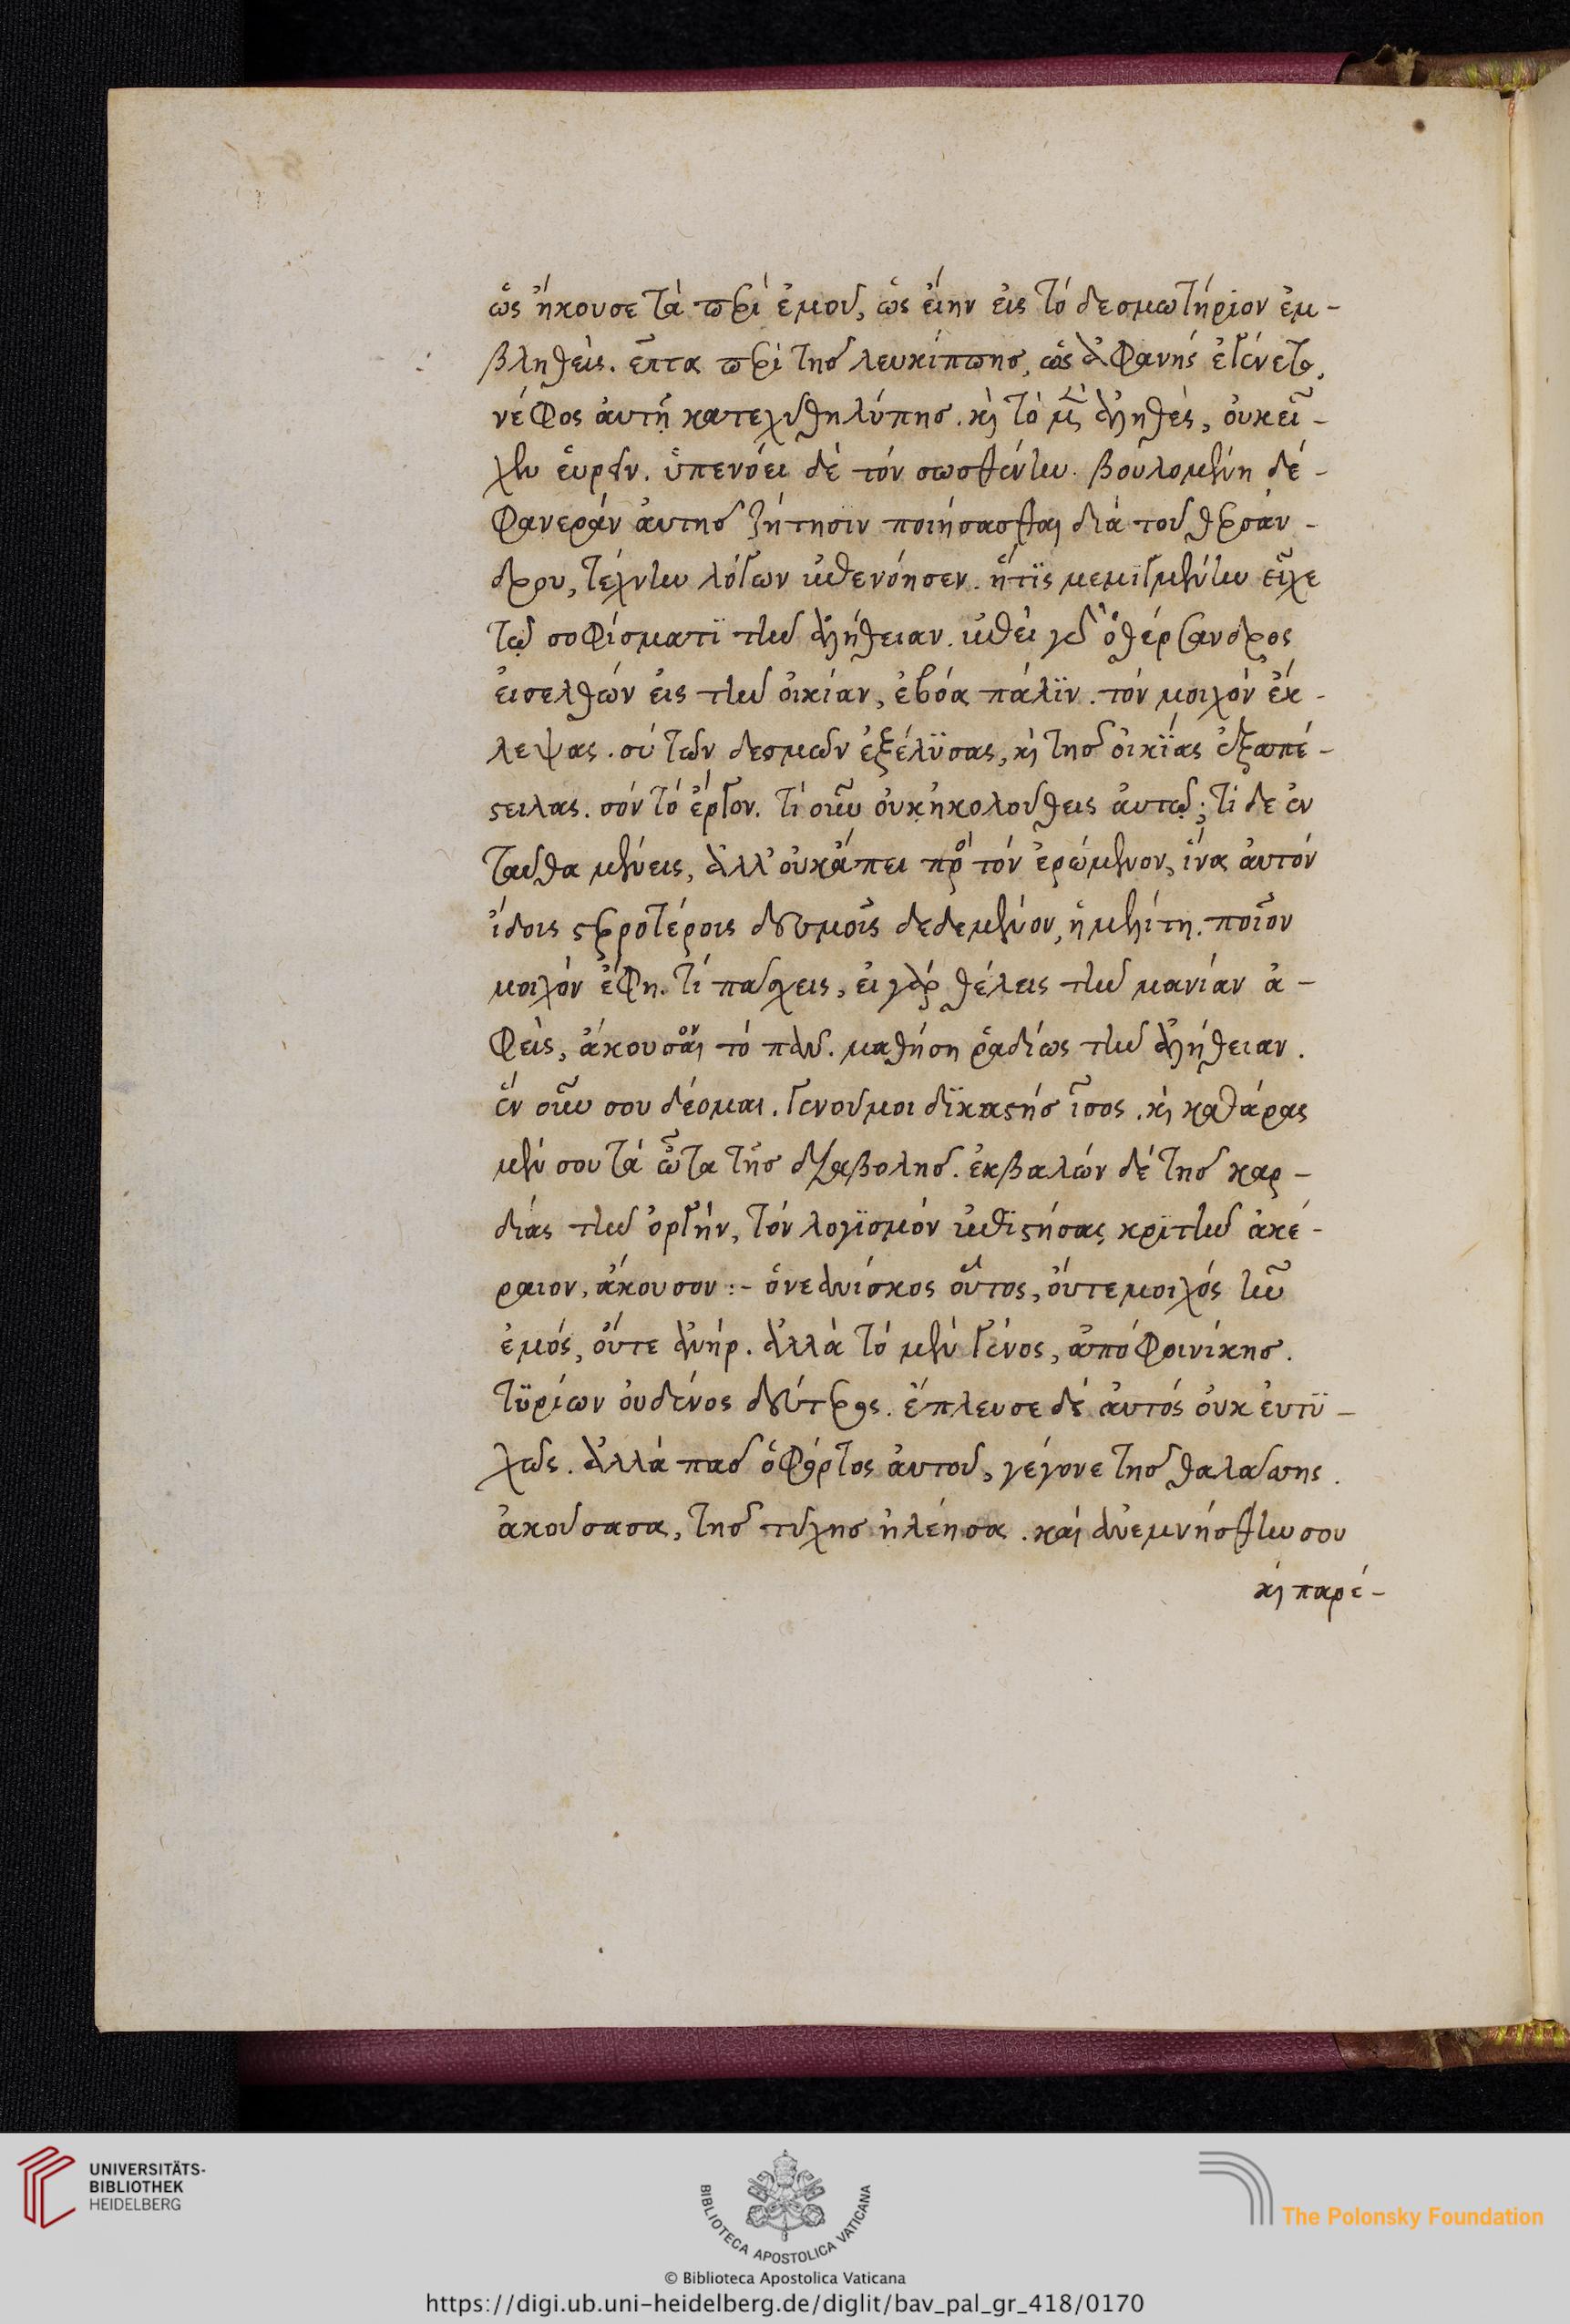 ὡς ἤκουσε τὰ περὶ ἐμοῦ, ὡς εἴην εἰς τὸ δεσμωτήριον ἐμ-
βληθεὶς. εἶτα περὶ τῆς λευκίππης, ὡς ἀφανὴς ἐγένετο,
νέφος αὐτῇ κατεχύθη λύπης. καὶ τὸ μὲν ἀληθὲς, οὐκ εἶ-
χεν εὑρεῖν. ὑπενόει δὲ τὸν σωσθένην. βουλομένη δὲ-
φανερὰν αὐτῆς ζήτησιν ποιήσασθαι διὰ τοῦ θερσάν-
δρου, τέχνην λόγων ἐπενόησεν. ἥτϊς μεμϊγμένην εἶχε
τῷ σοφίσματϊ τὴν ἀλήθειαν. ἐπεὶ γὰρ ὁ θέρσανδρος
εἰσελθὼν εἰς τὴν οἰκίαν, ἐβόα πάλϊν. τὸν μοιχὸν ἔκ-
λεψας. σὺ τῶν δεσμῶν ἐξέλϋσας, καὶ τῆς οἰκΐας ἐξαπέ-
στειλας. σὸν τὸ ἔργον. τί οὖν οὐκ ἠκολούθεις αὐτῷ; τί δὲ ἐν
ταῦθα μένεις, ἀλλ' οὐκ ἄπει πρὸς τὸν ἐρώμενον, ἵνα αὐτὸν
ἴδοις στερροτέροις δεσμοῖς δεδεμένον, ἡ μελίτη. ποῖον
μοιχὸν ἔφη. τί πάσχεις, εἰ γὰρ θέλεις τὴν μανίαν ἀ-
φεὶς, ἀκοῦσαι τὸ πᾶν. μαθήσῃ ῥαδίως τὴν ἀλήθειαν.
ἓν οὖν σου δέομαι. γενοῦ μοι δϊκαστὴς ἴσος. καὶ καθάρας
μέν σου τὰ ὦτα τῆς διαβολῆς. ἐκβαλὼν δὲ τῆς καρ-
δίας τὴν ὀργὴν, τὸν λογϊσμὸν ἐπϊστήσας κρϊτὴν ἀκέ-
ραιον, ἄκουσον:- ὁ νεανίσκος οὗτος, οὔτε μοιχὸς ἦν
ἐμὸς, οὔτε ἀνὴρ. ἀλλὰ τὸ μὲν γένος, ἀπὸ φοινίκης.
τϋρίων οὐδενὸς δεύτερος. ἔπλευσε δὲ αὐτὸς οὐκ εὐτϋ-
χῶς. ἀλλὰ πᾶς ὁ φόρτος αὐτοῦ, γέγονε τῆς θαλάσσης.
ἀκούσασα, τῆς τύχης ἠλέησα. καὶ ἀνεμνήσθην σου
καὶ παρέ-
UNIVERSITÄTS-
BIBLIOTHEK
HEIDELBERG
BIBLIOTECA APOSTOLICA VATICANA
© Biblioteca Apostolica Vaticana
The Polonsky Foundation
https://digi.ub.uni-heidelberg.de/diglit/bav_pal_gr_418/0170